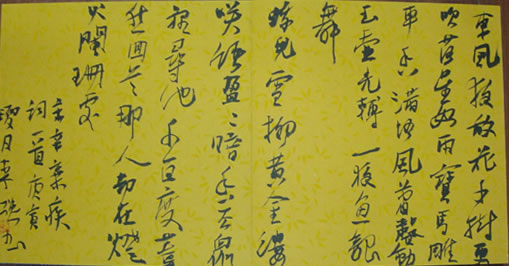 東風夜放花千樹更
吹落星如雨寶馬雕
車香滿路風簫聲動
玉壺光轉一夜魚龍
舞
蛾兒雪柳黃金縷
笑語盈〻暗香去眾
裡尋他千百度驀
然回首那人却在燈
火闌珊處
宋辛棄疾
詞一首庚寅
月